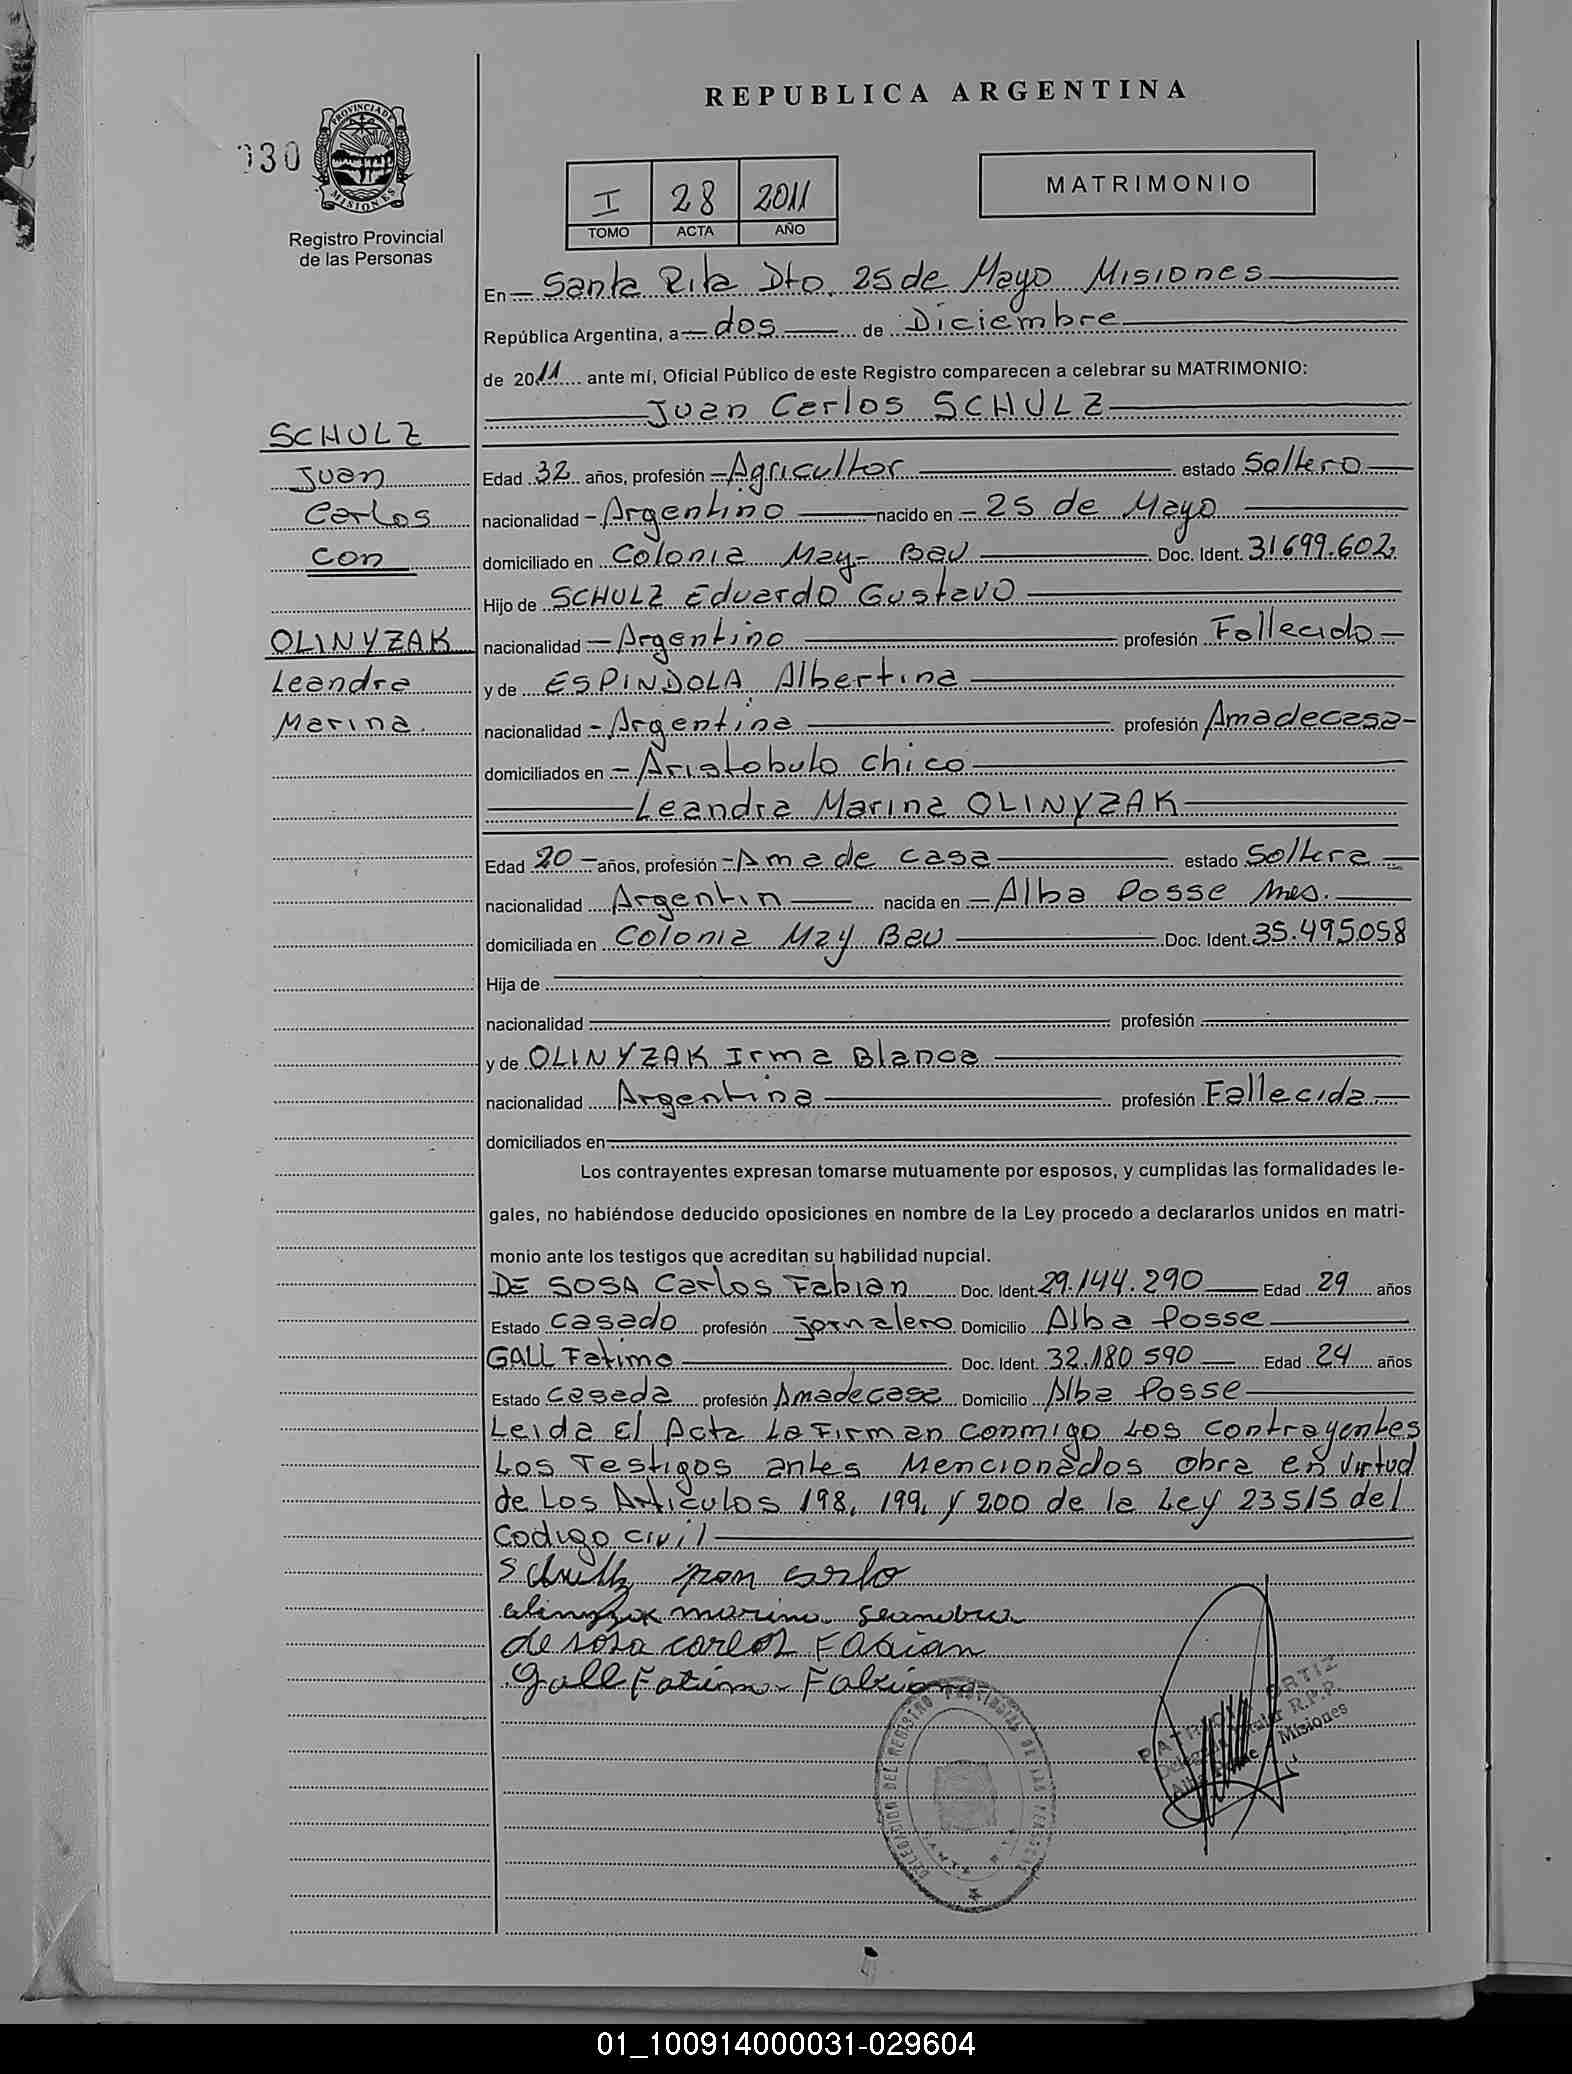 REPUBLICA ARGENTINA
030
PROVINCIA DE
MISIONES
Registro Provincial
de las Personas
I 28 2011
TOMO ACTA AÑO
MATRIMONIO
En Santa Rita Dto. 25 de Mayo Misiones
República Argentina, a dos de Diciembre
de 2011 ante mí, Oficial Público de este Registro comparecen a celebrar su MATRIMONIO:
Juan Carlos SCHULZ
SCHULZ
Juan
Carlos
con
OLINYZAK
Leandra
Marina.
Edad 32 años, profesión Agricultor estado Soltero
nacionalidad Argentino nacido en 25 de Mayo
domiciliado en Colonia May-Bau Doc. Ident. 31699.602
Hijo de SCHULZ Eduardo Gustavo
nacionalidad Argentino profesión Fallecido
y de ESPINDOLA Albertina
nacionalidad Argentina profesión Amadecasa
domiciliados en Aristobulo chico
Leandra Marina OLINYZAK
Edad 20 años, profesión Ama de casa estado Soltera
nacionalidad Argentin nacida en Alba Posse Mes.
domiciliada en Colonia May Bau Doc. Ident. 35.495058
Hija de
nacionalidad profesión
y de OLINYZAK Irma Blanca
nacionalidad Argentina profesión Fallecida
domiciliados en
Los contrayentes expresan tomarse mutuamente por esposos, y cumplidas las formalidades le-
gales, no habiéndose deducido oposiciones en nombre de la Ley procedo a declararlos unidos en matri-
monio ante los testigos que acreditan su habilidad nupcial.
DE SOSA Carlos Fabian Doc. Ident. 29.144.290 Edad 29 años
Estado casado profesión jornalero Domicilio Alba Posse
GALL Fatima Doc. Ident. 32.180.590 Edad 24 años
Estado casada profesión Amadecasa Domicilio Alba Posse
Leida El Acta La Firman conmigo Los contrayentes
Los Testigos antes Mencionados obra en virtud
de Los Articulos 198, 199, y 200 de la Ley 23515 del
Codigo civil
de sosa carlos Fabian
Gall Fatima Fabiana
DELEGACION DEL REGISTRO PROVINCIAL DE LAS PERSONAS
ORTIZ
Titular R.P.P.
Alba Posse - Misiones
01_100914000031-029604